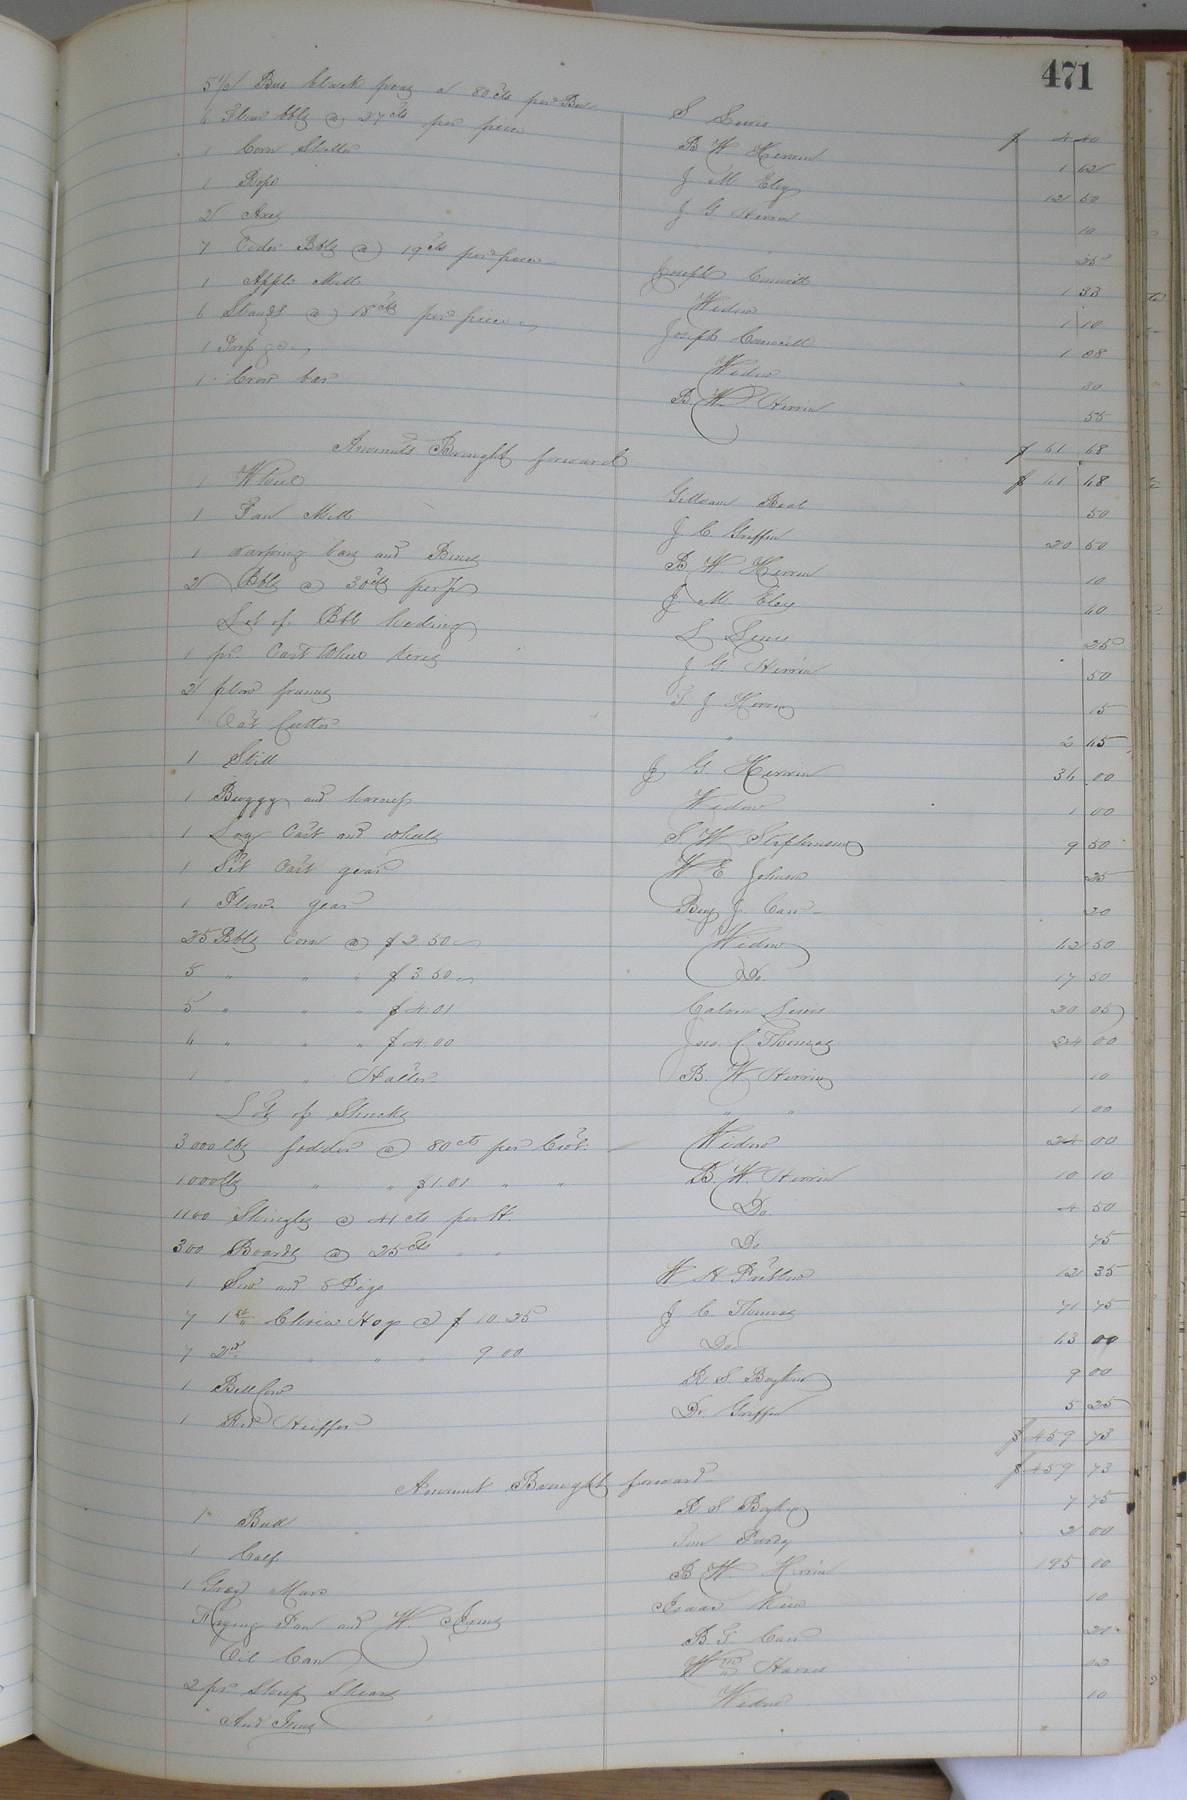 471
5 1/2 Bus black peas @ 80 cts per Bus S Lewis $ 4 40
6 Flour bbls @ 27 cts per piece B W Herrin 1 62
1 Corn Sheller J M Eley 12 50
1 Rope J G Herrin 10
2 Axes " 25
7 Cider Bbls @ 19 cts per piece Joseph 1 33
1 Apple Mill Widow 1 10
6 Stands @ 18 cts per piece Joseph 1 08
1 Widow 30
1 Crow bar B. W. Herrin 55
$ 61 68
Amounts Brought forward $ 61 68
1 Wheel 50
1 Fan Mill J C Griffin 20 50
1 warping bars and B W Herrin 10
2 Bbls @ 30 cts per p J M Eley 60
Lot of Bbl heading S Lewis 25
1 pr. Cart Wheel tires J G Herrin 50
2 plow frames T J Herrin 15
Oat Cutter " 2 65
1 Still J G Herrin 36 00
1 Buggy and harness Widow 1 00
1 Log Cart and wheels S W Stephenson 9 50
1 Set Cart gear W E Johnson 25
1 Plow gear Benj J. Carr 20
25 Bbls Corn @ $2.50 Widow 62 50
5 " " " $3.50 Do. 17 50
5 " " " $4.01 Calvin Lewis 20 05
6 " " " $4.00 Jno. C. Thomas 24 00
1 " " Halter B. W Herrin 10
Lot of Shucks " " 1 00
3000 lbs fodder @ 80 cts per Cwt. Widow 24 00
1000 lbs " " $1.01 " " B. W. Herrin 10 10
1100 Shingles @ 41 cts per H. Do. 4 50
300 Boards @ 25 cts " " Do 75
1 Sow and 8 Pigs W H Pruden 12 35
7 1st Choice Hogs @ $10.25 J C Thomas 71 75
7 2nd " " " 9 00 Do 63 00
1 Bell Cow R S Boykin 9 00
1 Red Heiffer Dr. Griffin 5 25
$ 459 73
Amount Brought forward $ 459 73
1 Bull R S Boykin 7 75
1 Calf 2 00
1 Gray Mare B W Herrin 195 00
Frying Pan and W. Irons Isaac 10
Oil Can B. J. Carr 21
2 pr Sheep Shears Wm Harris 02
And Irons Widow 10